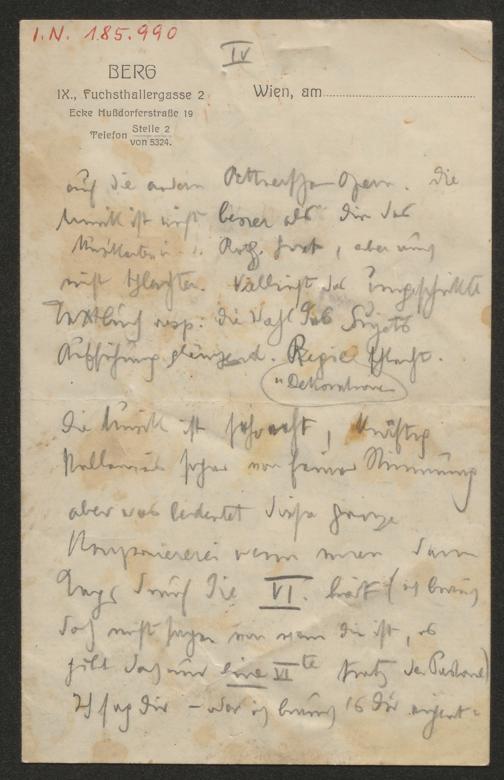 I.N. 185.990
IV
BERG
IX., Fuchsthallergasse 2
Ecke Hußdorferstraße 19
Telefon Stelle 2 von 5324.
Wien, am
auf die andern Oper. Die
Musik ist nicht besser als die des
, aber auch
nicht schlechter. Vielleicht das ungeschickte
Textbuch resp. die Wahl des Sujets
Aufführung glänzend. Regie schlecht.
"Dekorationen
Die Musik ist , kräftig
stellenweise sogar von feiner Stimmung
aber was bedeutet diese ganze
Komponiererei wenn man dann
Tags drauf die VI. hört (ich brauch
doch nicht sagen von wem die ist, es
gibt doch nur eine VIte trotz der Pastorale)
Ich sag Dir – oder ich brauch es Dir eigent-